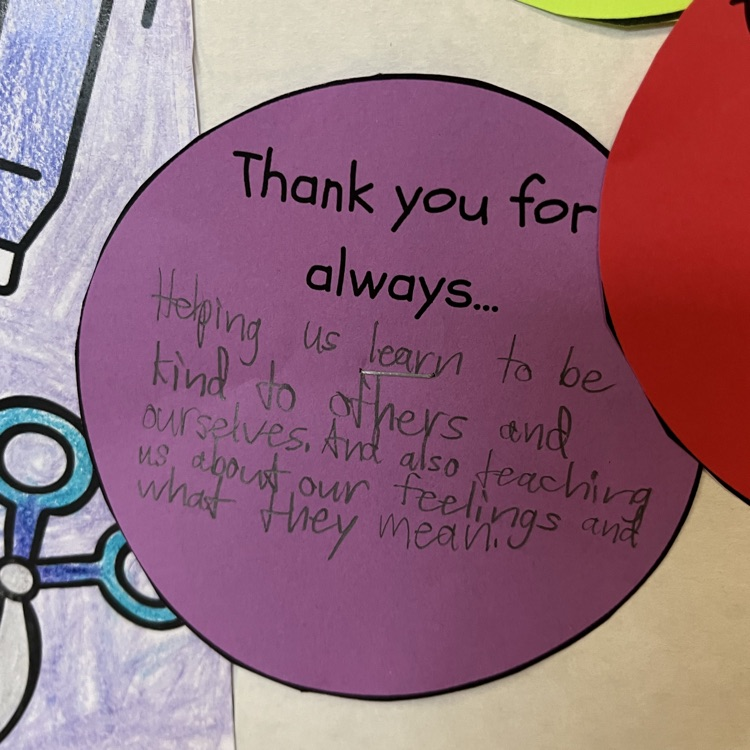 Thank you for
always...
Helping us learn to be
kind to others and
ourselves. And also teaching
us about our feelings and
what they mean.